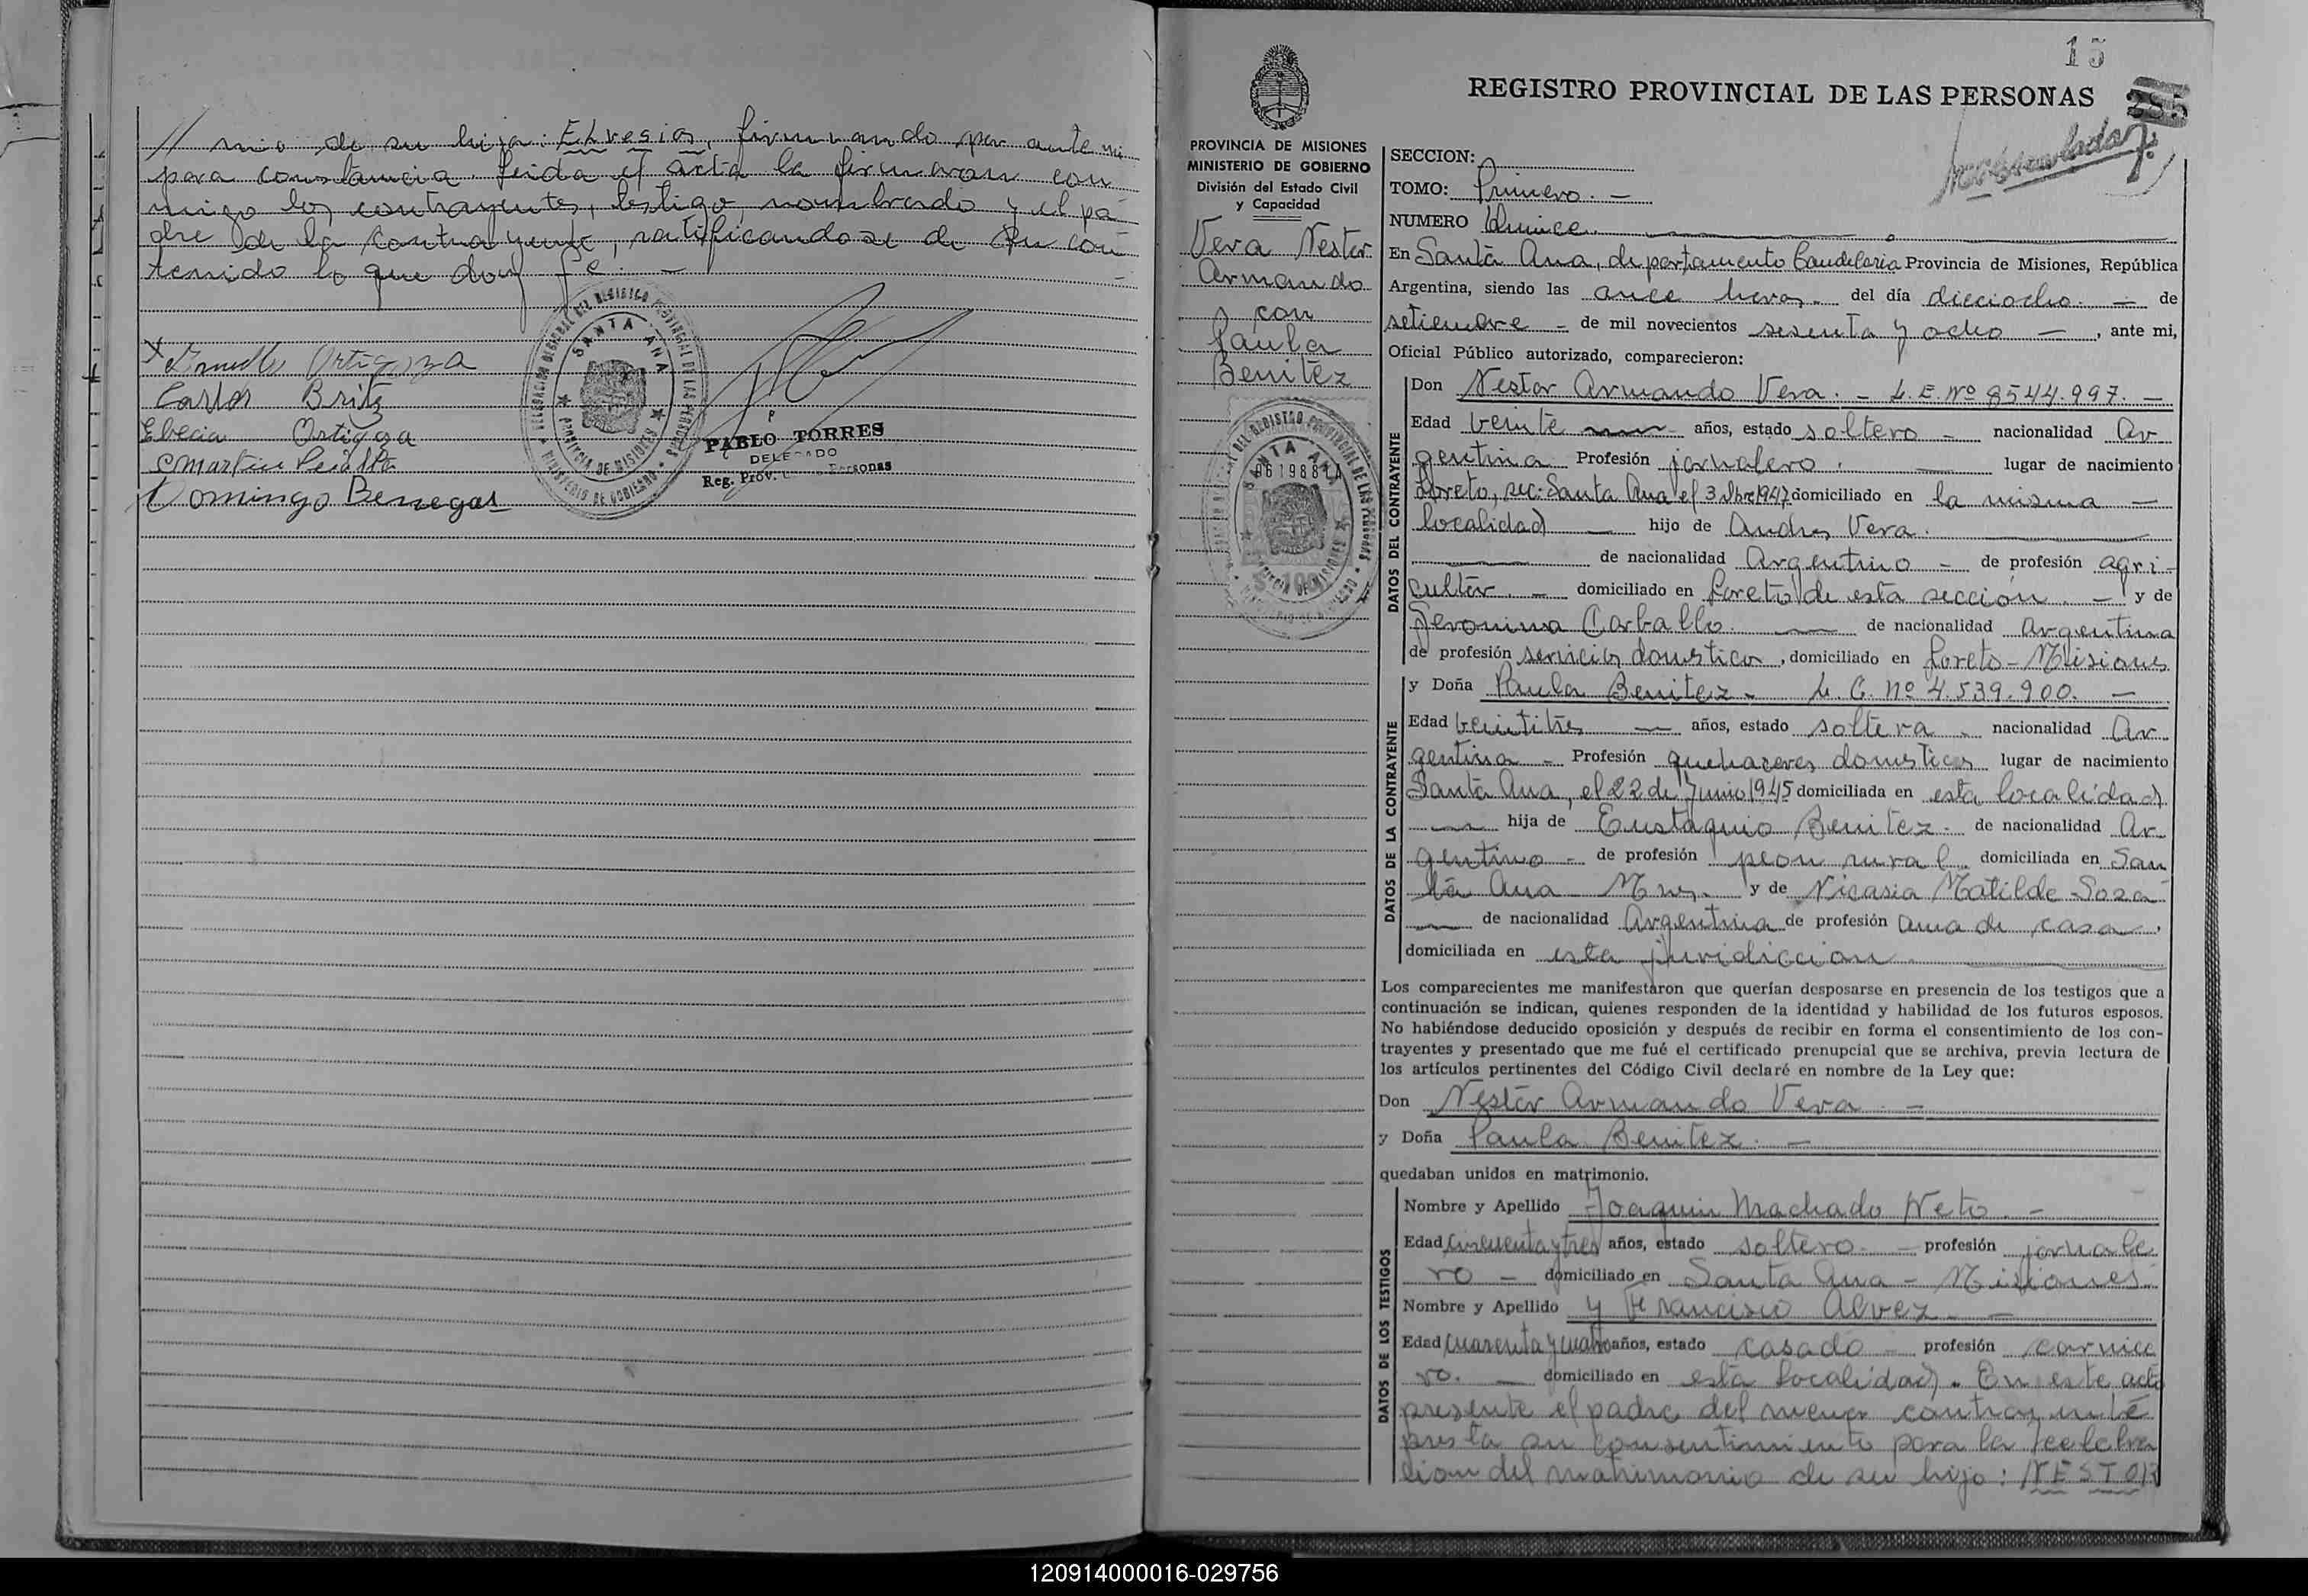 // nio de su hija: Elvesia, firmando por ante mi
para constancia. Leida el acta la firmaron con
migo los contrayentes, testigo, nombrado y el pa
dre de la contrayente, ratificandose de su con
tenido lo que doy fe. —
Ortigoza
Carlos Britz
Elvecia Ortigoza
Domingo Benegas
DELEGACION REGIONAL DEL REGISTRO PROVINCIAL DE LAS PERSONAS
SANTA ANA
PROVINCIA DE MISIONES
MINISTERIO DE GOBIERNO
PABLO TORRES
DELEGADO
Reg. Prov. Personas
15
REGISTRO PROVINCIAL DE LAS PERSONAS
285
PROVINCIA DE MISIONES
MINISTERIO DE GOBIERNO
División del Estado Civil
y Capacidad
Vera Nestor
Armando
con
Paula
Benitez
SANTA ANA
SECCION:
TOMO: Primero. —
NUMERO Quince.
En Santa Ana, departamento Candelaria Provincia de Misiones, República
Argentina, siendo las once horas. del día dieciocho. — de
setiembre - de mil novecientos sesenta y ocho — , ante mi,
Oficial Público autorizado, comparecieron:
DATOS DEL CONTRAYENTE
Don Nestor Armando Vera. - L.E. Nº 8544.997. —
Edad veinte años, estado soltero - nacionalidad Ar
gentina Profesión jornalero. — lugar de nacimiento
Loreto, sec: Santa Ana el 3 1947 domiciliado en la misma —
localidad — hijo de Andres Vera.
de nacionalidad Argentino - de profesión agri-
cultor. - domiciliado en Loreto de esta sección. - y de
Geronima Carballo. — de nacionalidad Argentina
de profesión servicios domestico, domiciliado en Loreto - Misiones
DATOS DE LA CONTRAYENTE
y Doña Paula Benitez - L.C. Nº 4.539.900. —
Edad veintitres — años, estado soltera - nacionalidad Ar
gentina - Profesión quehaceres domesticos lugar de nacimiento
Santa Ana, el 22 de Junio 1945 domiciliada en esta localidad
— hija de Eustaquio Benitez. de nacionalidad Ar
gentino - de profesión peon rural domiciliada en San
ta Ana - Mnes. y de Nicasia Matilde Soza
— de nacionalidad Argentina de profesión ama de casa.
domiciliada en esta juridiccion
Los comparecientes me manifestaron que querían desposarse en presencia de los testigos que a
continuación se indican, quienes responden de la identidad y habilidad de los futuros esposos.
No habiéndose deducido oposición y después de recibir en forma el consentimiento de los con-
trayentes y presentado que me fué el certificado prenupcial que se archiva, previa lectura de
los artículos pertinentes del Código Civil declaré en nombre de la Ley que:
Don Nestor Armando Vera. —
y Doña Paula Benitez. —
quedaban unidos en matrimonio.
DATOS DE LOS TESTIGOS
Nombre y Apellido Joaquin Machado Neto. —
Edad cincuenta y tres años, estado soltero. - profesión jornale
ro - domiciliado en Santa Ana - Misiones
Nombre y Apellido y Francisco Alvez. —
Edad cuarenta y cuatro años, estado casado - profesión carnice
ro. — domiciliado en esta localidad. En este acto
presente el padre del menor contrayente
presta su consentimiento para la celebra
cion del matrimonio de su hijo: NESTOR
120914000016-029756